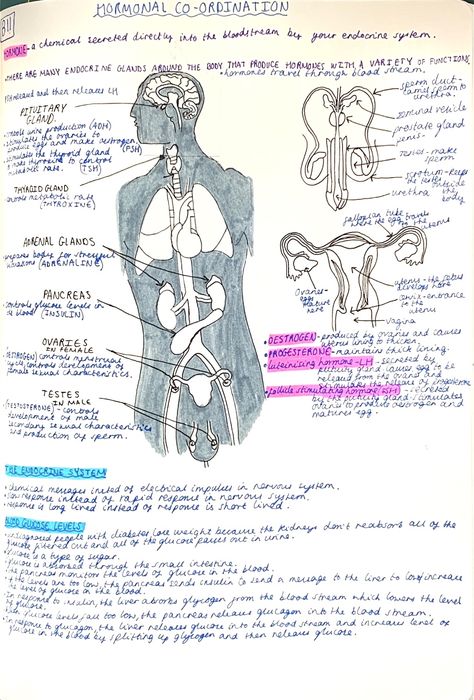 B11
HORMONAL CO-ORDINATION
HORMONE - a chemical secreted directly into the bloodstream by your endocrine system.
THERE ARE MANY ENDOCRINE GLANDS AROUND THE BODY THAT PRODUCE HORMONES WITH A VARIETY OF FUNCTIONS
• hormones travel through blood stream.
released and then releases LH
PITUITARY
GLAND.
urine production (ADH)
stimulates the ovaries to
eggs and make oestrogen
(FSH)
stimulates the thyroid gland
to control
metabolic rate.
(TSH)
THYROID GLAND
controls metabolic rate
(THYROXINE)
ADRENAL GLANDS
prepares body for stressful
situations (ADRENALINE)
PANCREAS
controls glucose levels in
blood (INSULIN)
OVARIES
IN FEMALE
(OESTROGEN) controls menstrual
cycle, controls development of
female sexual characteristics.
TESTES
IN MALE
(TESTOSTERONE) - controls
development of male
secondary sexual characteristics
and production of sperm.
sperm duct -
sperm to
urethra.
seminal vesicle
prostate gland
penis -
testes - make
sperm
scrotum - keeps
the testes
outside
the body
urethra
fallopian tube
where the egg
to the uterus
Ovaries -
eggs
mature
here
uterus - the fetus
develops here
cervix - entrance
to the
uterus
vagina
• OESTROGEN - produced by ovaries and causes
uterus lining to thicken.
• PROGESTERONE - maintains thick lining.
luteinising hormone - LH - secreted by
pituitary gland causes egg to be
released from the ovaries and
stimulates the release of
follicle stimulating hormone - FSH - secreted
by the pituitary gland / stimulates
ovaries to produce oestrogen and
matures egg.
THE ENDOCRINE SYSTEM
• chemical messages instead of electrical impulses in nervous system.
• slow response instead of rapid response in nervous system.
• response is long lived instead of response is short lived.
BLOOD GLUCOSE LEVELS
• undiagnosed people with diabetes lose weight because the kidneys don't reabsorb all of the
glucose filtered out and all of the glucose passes out in urine.
• glucose is a type of sugar.
• glucose is absorbed through the small intestine.
• the pancreas monitor the levels of glucose in the blood.
• if the levels are too low, the pancreas sends insulin to send a message to the liver to low/increase
the levels of glucose in the blood.
• In response to insulin, the liver absorbs glycogen from the blood stream which lowers the level
of glucose.
• when glucose levels fall too low, the pancreas releases glucagon into the blood stream.
• in response to glucagon, the liver releases glucose into the blood stream and increases level of
glucose in the blood by splitting up glycogen and then releases glucose.